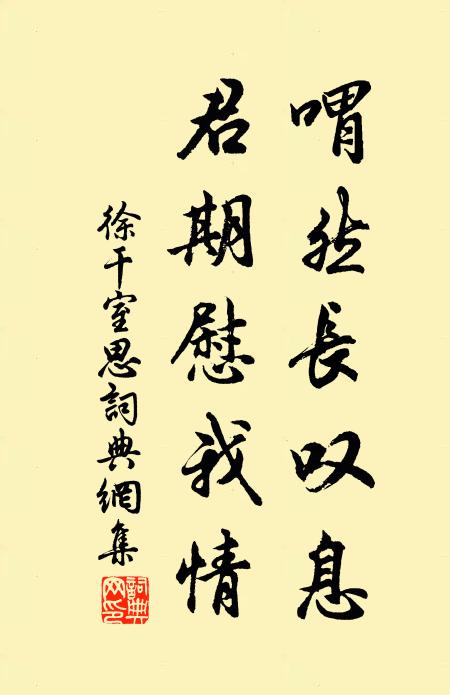 喟然長叹息
君期慰我情
徐干室思詞典網集
詞典网印